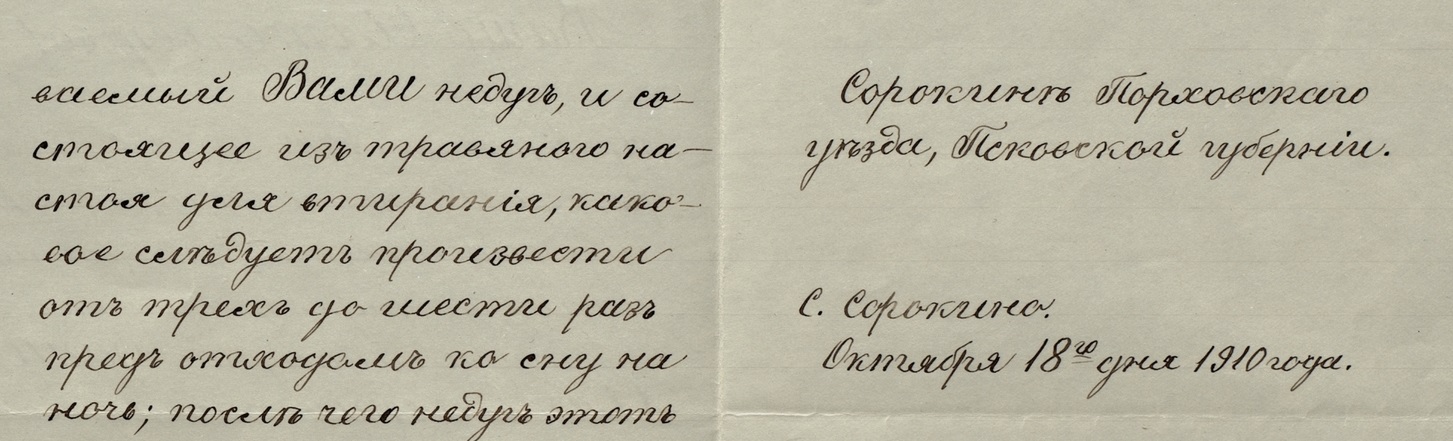 ваемый Вами недугъ, и со-
стоящее изъ травяного на-
стоя для втиранія, како-
вое слѣдуетъ произвести
отъ трехъ до шести разъ
предъ отходомъ ко сну на
ночь; послѣ чего недугъ этотъ
Сорокинѣ Порховскаго
уѣзда, Псковской губерніи.
С. Сорокино.
Октября 18го дня 1910 года.